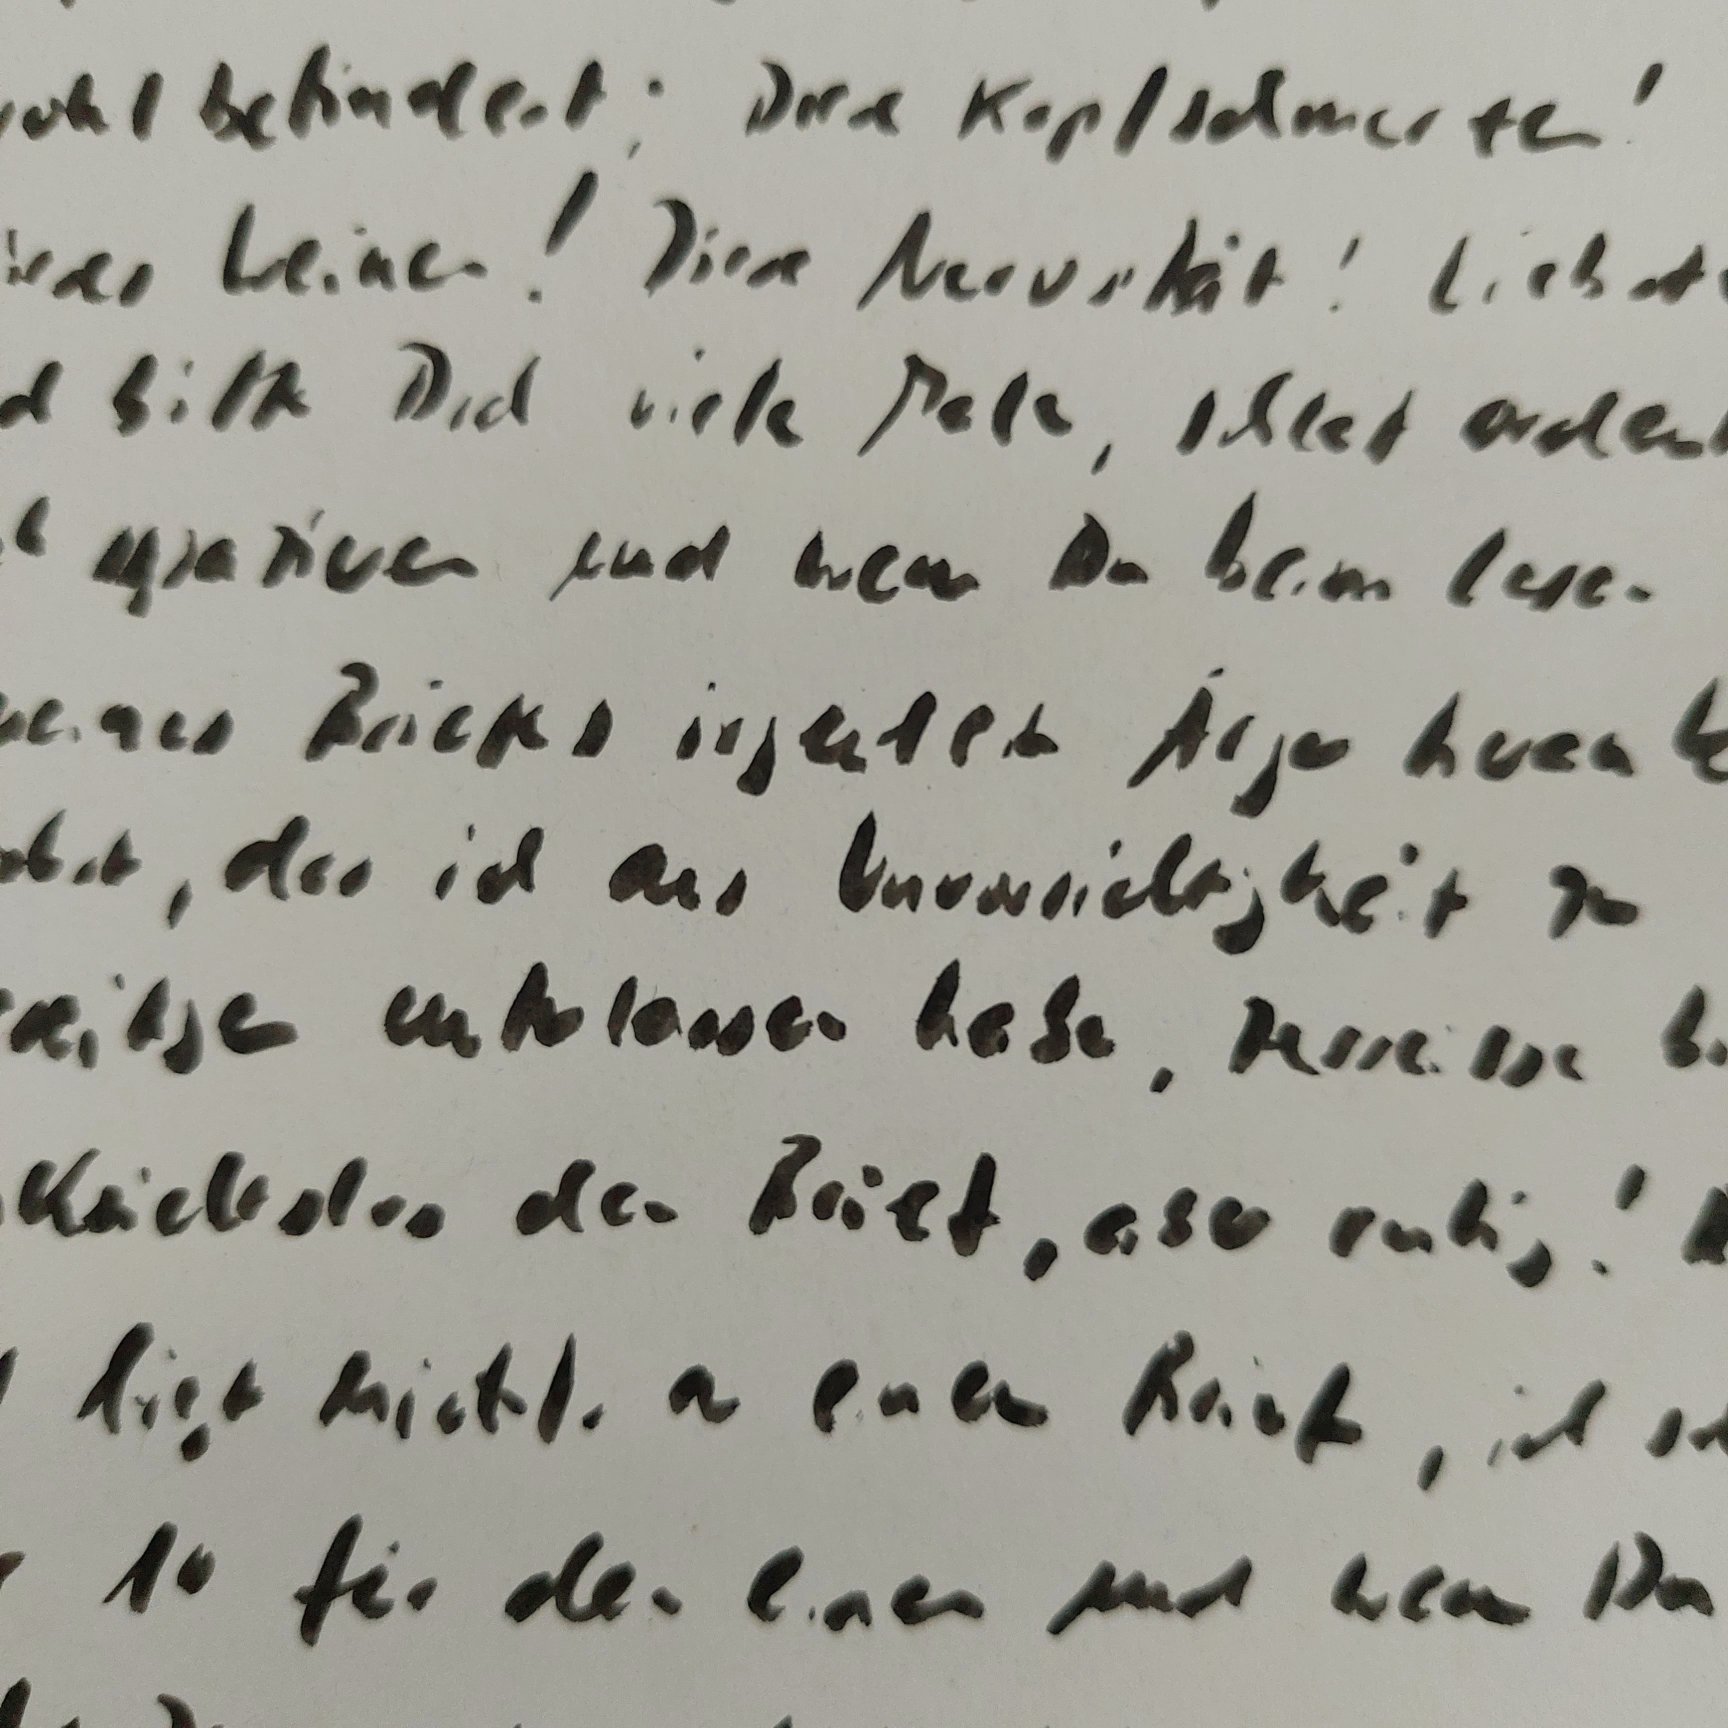 wohl befindest; Diese Kopfschmerzen!
dieses Weinen! Diese Nervosität! Liebste
bitte Dich viele Male, schlaf ordent
spazieren und wenn Du beim lesen
meines Briefes irgendein Ärger kommen
, das ich aus Unvorsichtigkeit zu
beseitigen unterlassen habe, zerreisse
rücksichtslos den Brief, aber ruhig!
liegt nichts an einem Brief, ich
10 für den einen und wenn Du